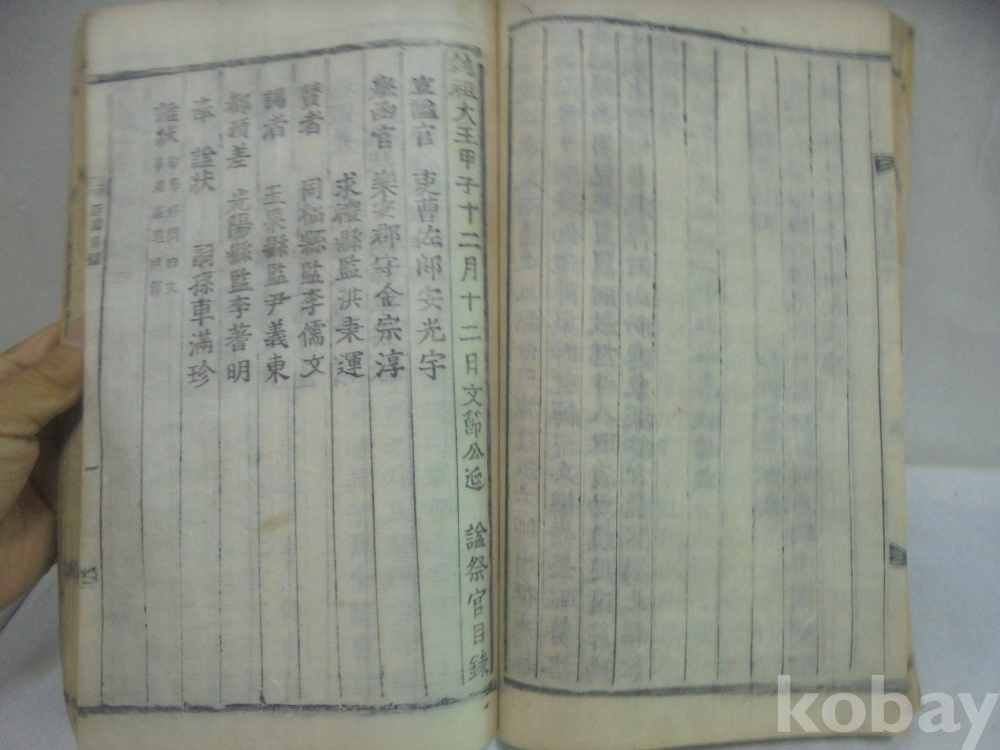 純祖大王甲子十二月十二日文節公延 諡祭官目錄
宣諡官 吏曹佐郎安光宇
奉函官 樂安郡守金宗淳
求禮縣監洪秉運
贊者 同福縣監李儒文
謁者 王果縣監尹義東
都預差 光陽縣監李著明
本 諡狀 嗣孫車滿珍
諡狀
好問曰文
曰節
kobay